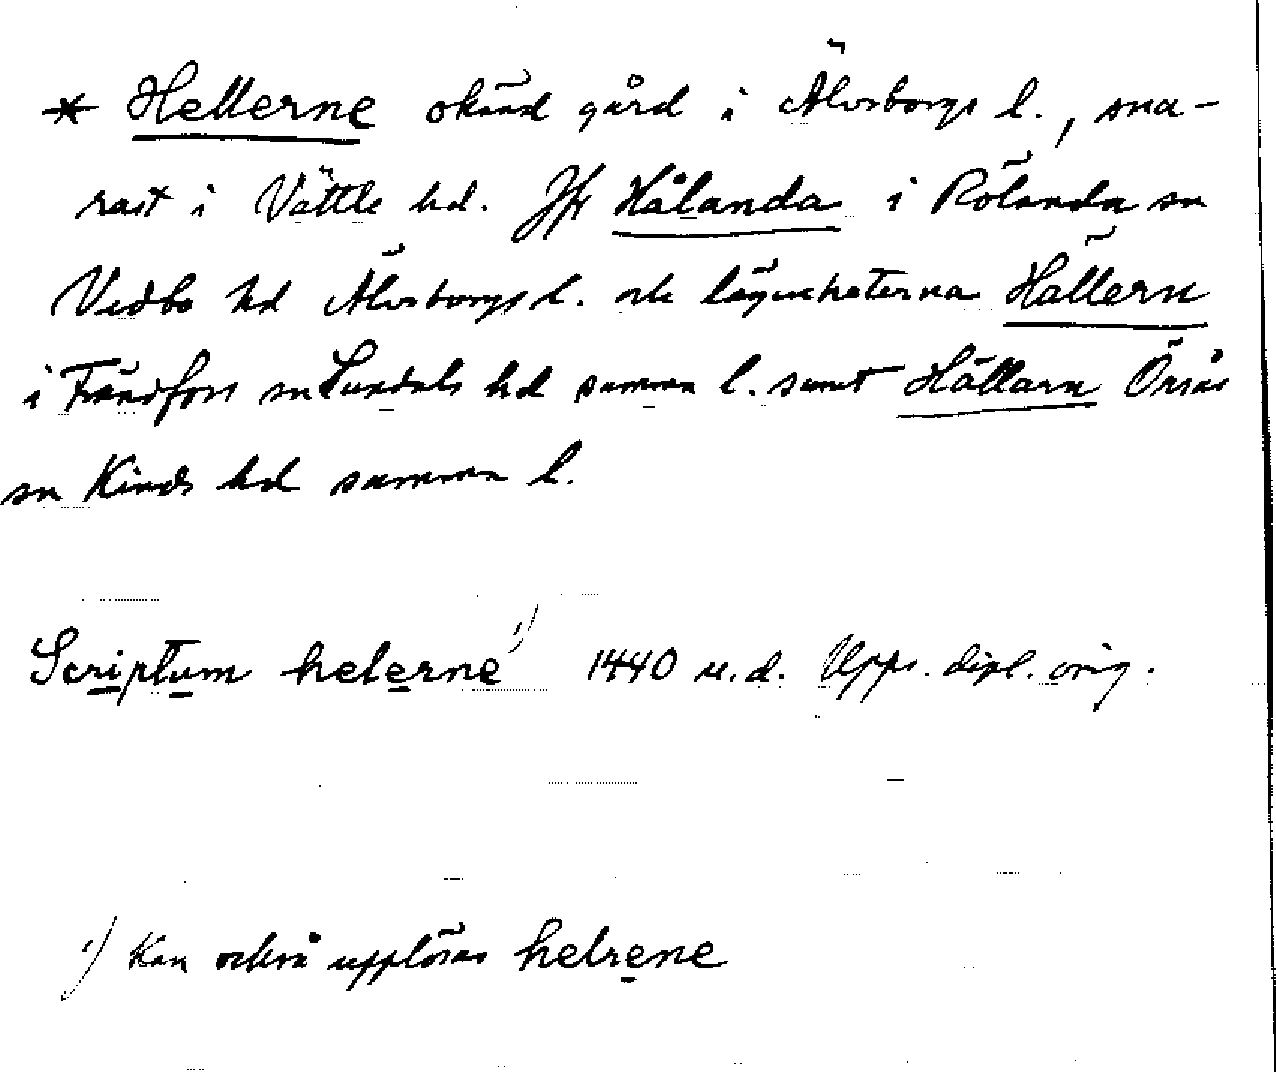 * Hellerne okänd gård i Älvsborgs l., sna-
rast i Vättle hd. Jfr Hålanda i Rölanda sn
Vedbo hd Älvsborgs l. och lägenheterna Hällern
i Frändefors sn Sundals hd samma l. samt Hällarn Örsås
sn Kinds hd samma l.
Scriptum helerne 1) 1440 u.d. Upps. dipl. orig.
1) Kan också upplösas helrene